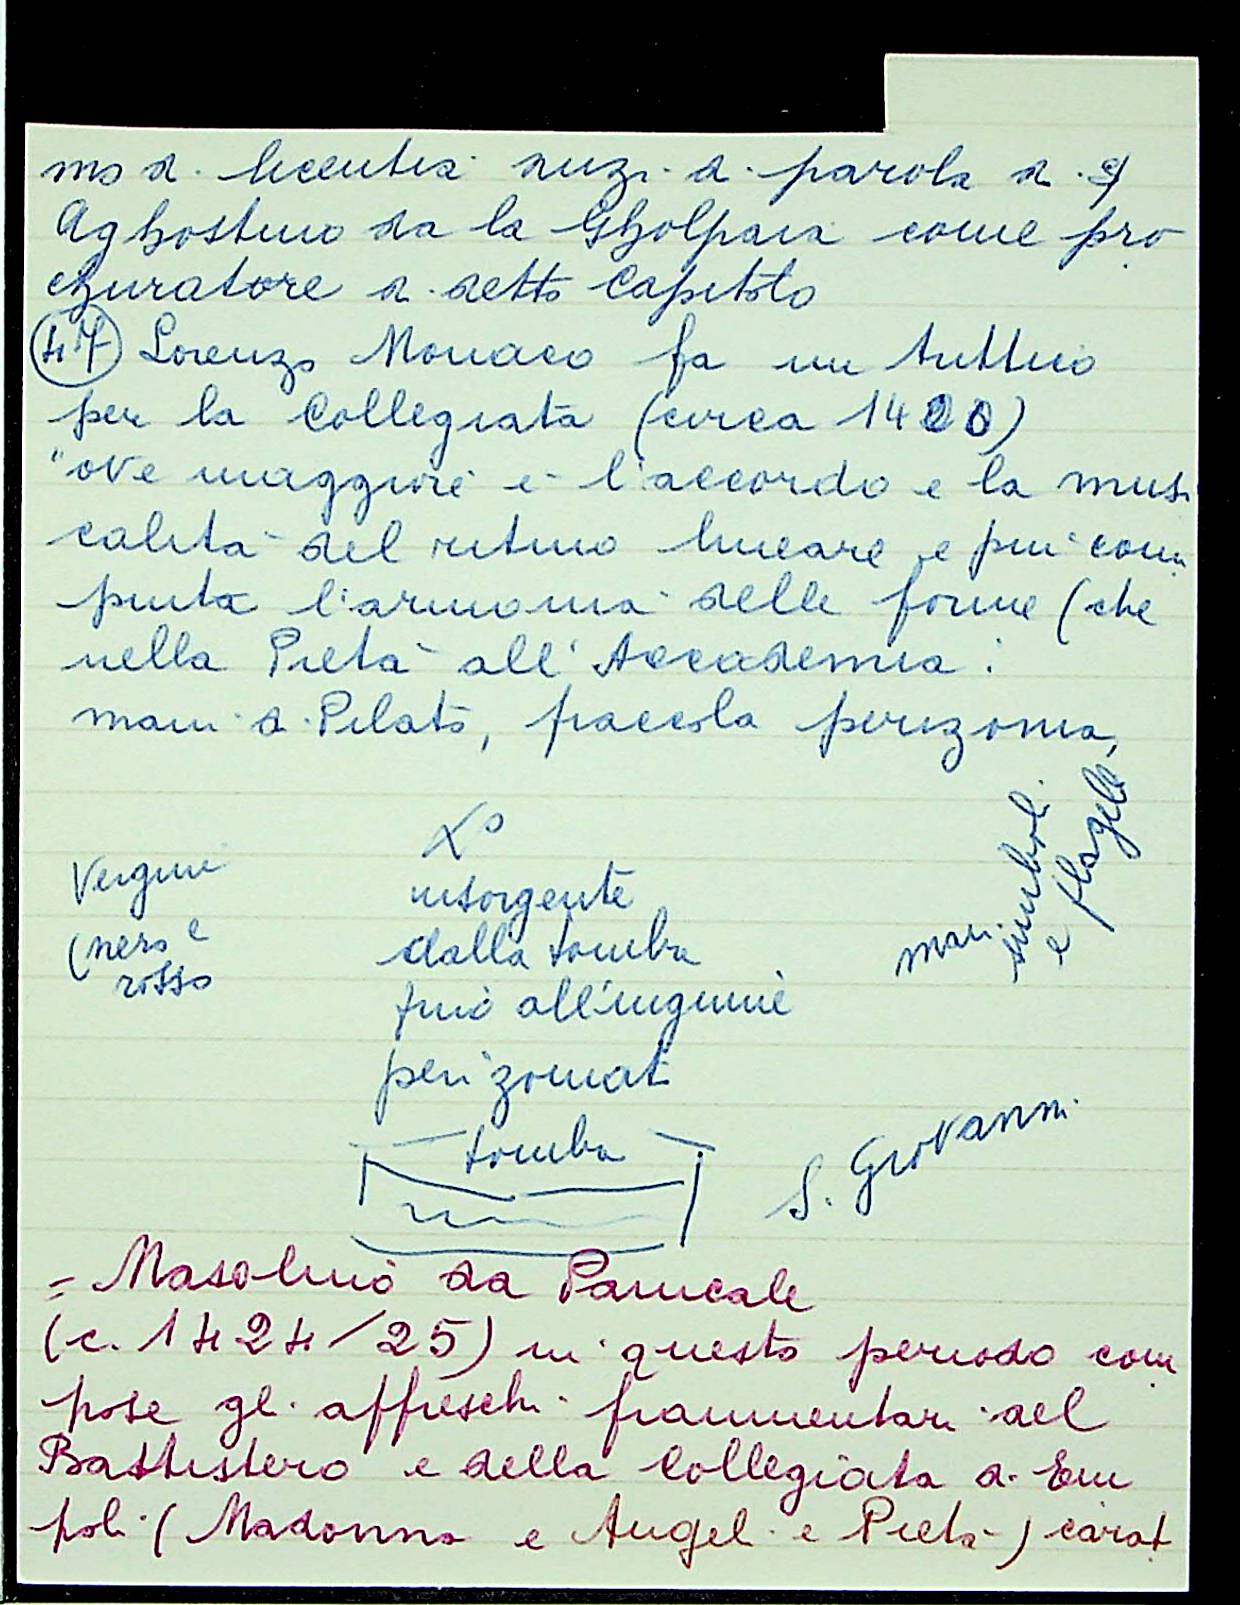 mo di licentia anzi di parola di S
Aghostino da la Gholpaia come pro
churatore di detto Capitolo
47 Lorenzo Monaco fa un trittico
per la Collegiata (circa 1420)
"ove maggiore è l'accordo e la musi
calità del ritmo lineare e più com
piuta l'armonia delle forme (che
nella Pietà all'Accademia:
mani di Pilato, fiaccola perizoma,
Xº
Vergine
risorgente
(nero e
rosso
dalla tomba
fino all'inguine
perizomat
mani simboli
e flagelli
tomba
S. Giovanni
= Masolino da Panicale
(c. 1424/25) in questo periodo com
pose gli affreschi frammentari del
Battistero e della Collegiata di Em
poli (Madonna e Angeli e Pietà) carat